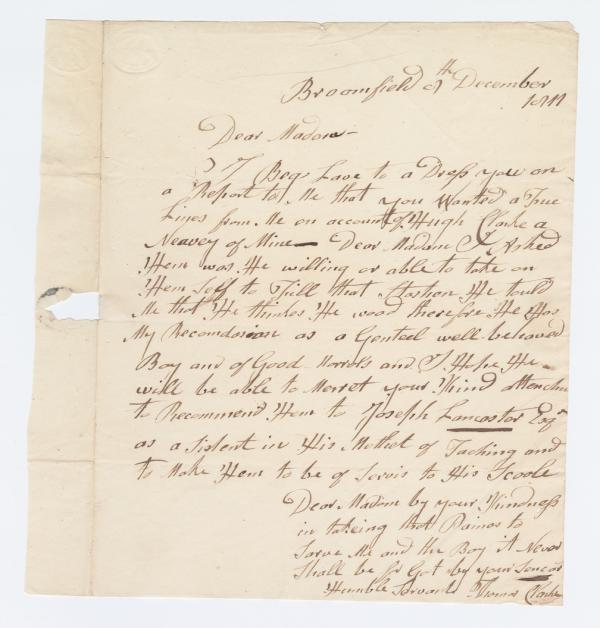 Broomfield 9th December
1811
Dear Madam
I Beg Lave to a Dress you on
a Report to Me that you Wanted a True
Lines from Me on account of Hugh Clarke a
Neavey of Mine Dear Madam I Asked
Hem was He willing or able to take on
Hem Self to Fill that Stashon He tould
Me that He thinkes He wood therefore He Has
My Recomdasion as a Genteel well behaved
Boy and of Good Morrels and I Hope He
will be able to Merret your Kind attenchn
to Recommend Hem to Joseph Lancaster Esqr
as a Sistent in His Mothet of Taching and
to Make Hem to be of Servis to His Scoole
Dear Madam by your Kindness
in takeing that Paines to
Sarve Me and the Boy it Never
Shall be for Got by your Sencear
Humble Servant Thomas Clarke